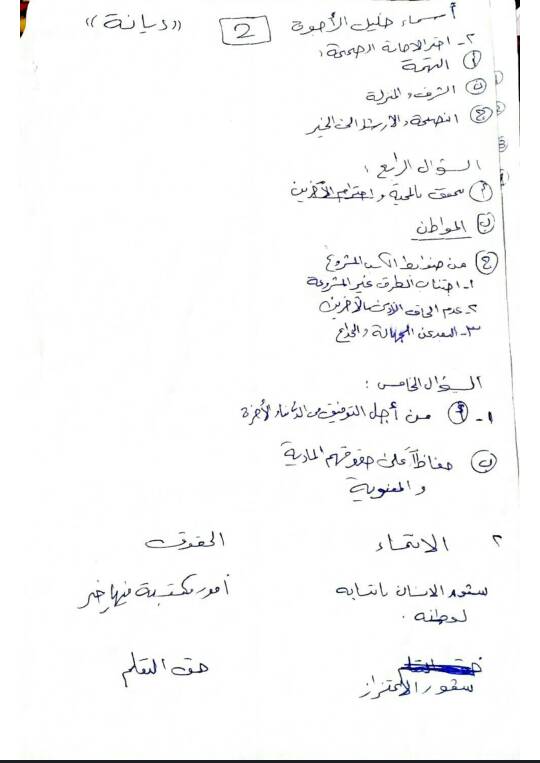 أسماء خليل الأجوة 2 ((ديانة))
٢- اختر الإجابة الصحيحة:
أ التهمة
ب الشرف والمنزلة
ج النصيحة والإرشاد الى الخير
السؤال الرابع:
أ بالمحبة واحترام الآخرين
ب المواطن
ج من ضوابط الكسب المشروع
١- اجتناب الطرق غير المشروعة
٢- عدم الحاق الأذى بالآخرين
٣- البعد عن الجهالة والخداع
السؤال الخامس:
١- أ من أجل التوفيق من الدنيا والآخرة
ب حفاظاً على حقوقهم المادية
والمعنوية
٢ الانتماء الحقوق
شعور الانسان بانتسابه أمور مكتسبة فيها خير
لوطنه.
حق التعلم حق التعلم
شعور الاعتزاز